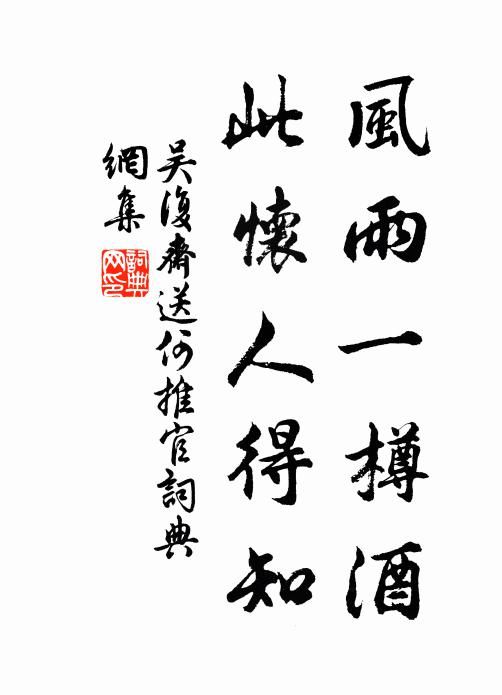 風雨一樽酒
此懷人得知
吴復齋送何推官詞典
網集
詞典
网印